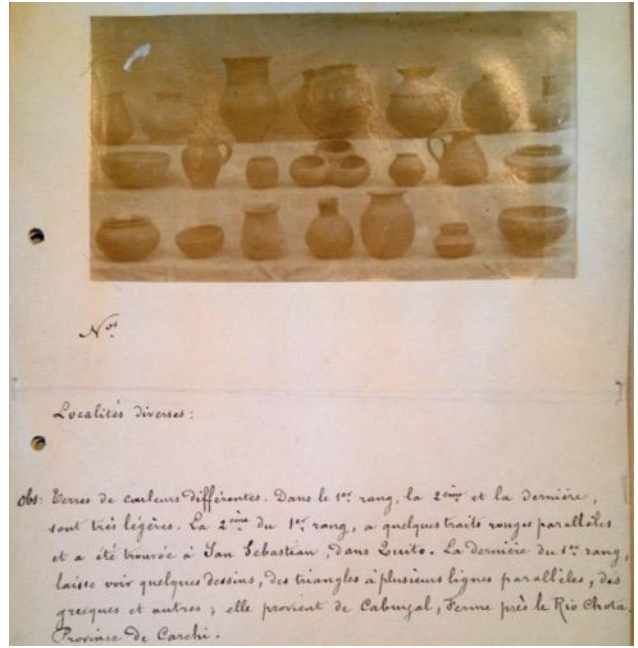 Nos
Localités diverses:
Obs: Terres de couleurs différentes. Dans le 1er rang, la 2ème et la dernière,
sont très légères. La 2ème du 1er rang, a quelques traits rouges parallèles
et a été trouvée à San Sebastian, dans Quito. La dernière du 1er rang,
laisse voir quelques dessins, des triangles à plusieurs lignes parallèles, des
grecques et autres; elle provient de Cabuyal, Ferme près le Rio Chota
Province de Carchi.